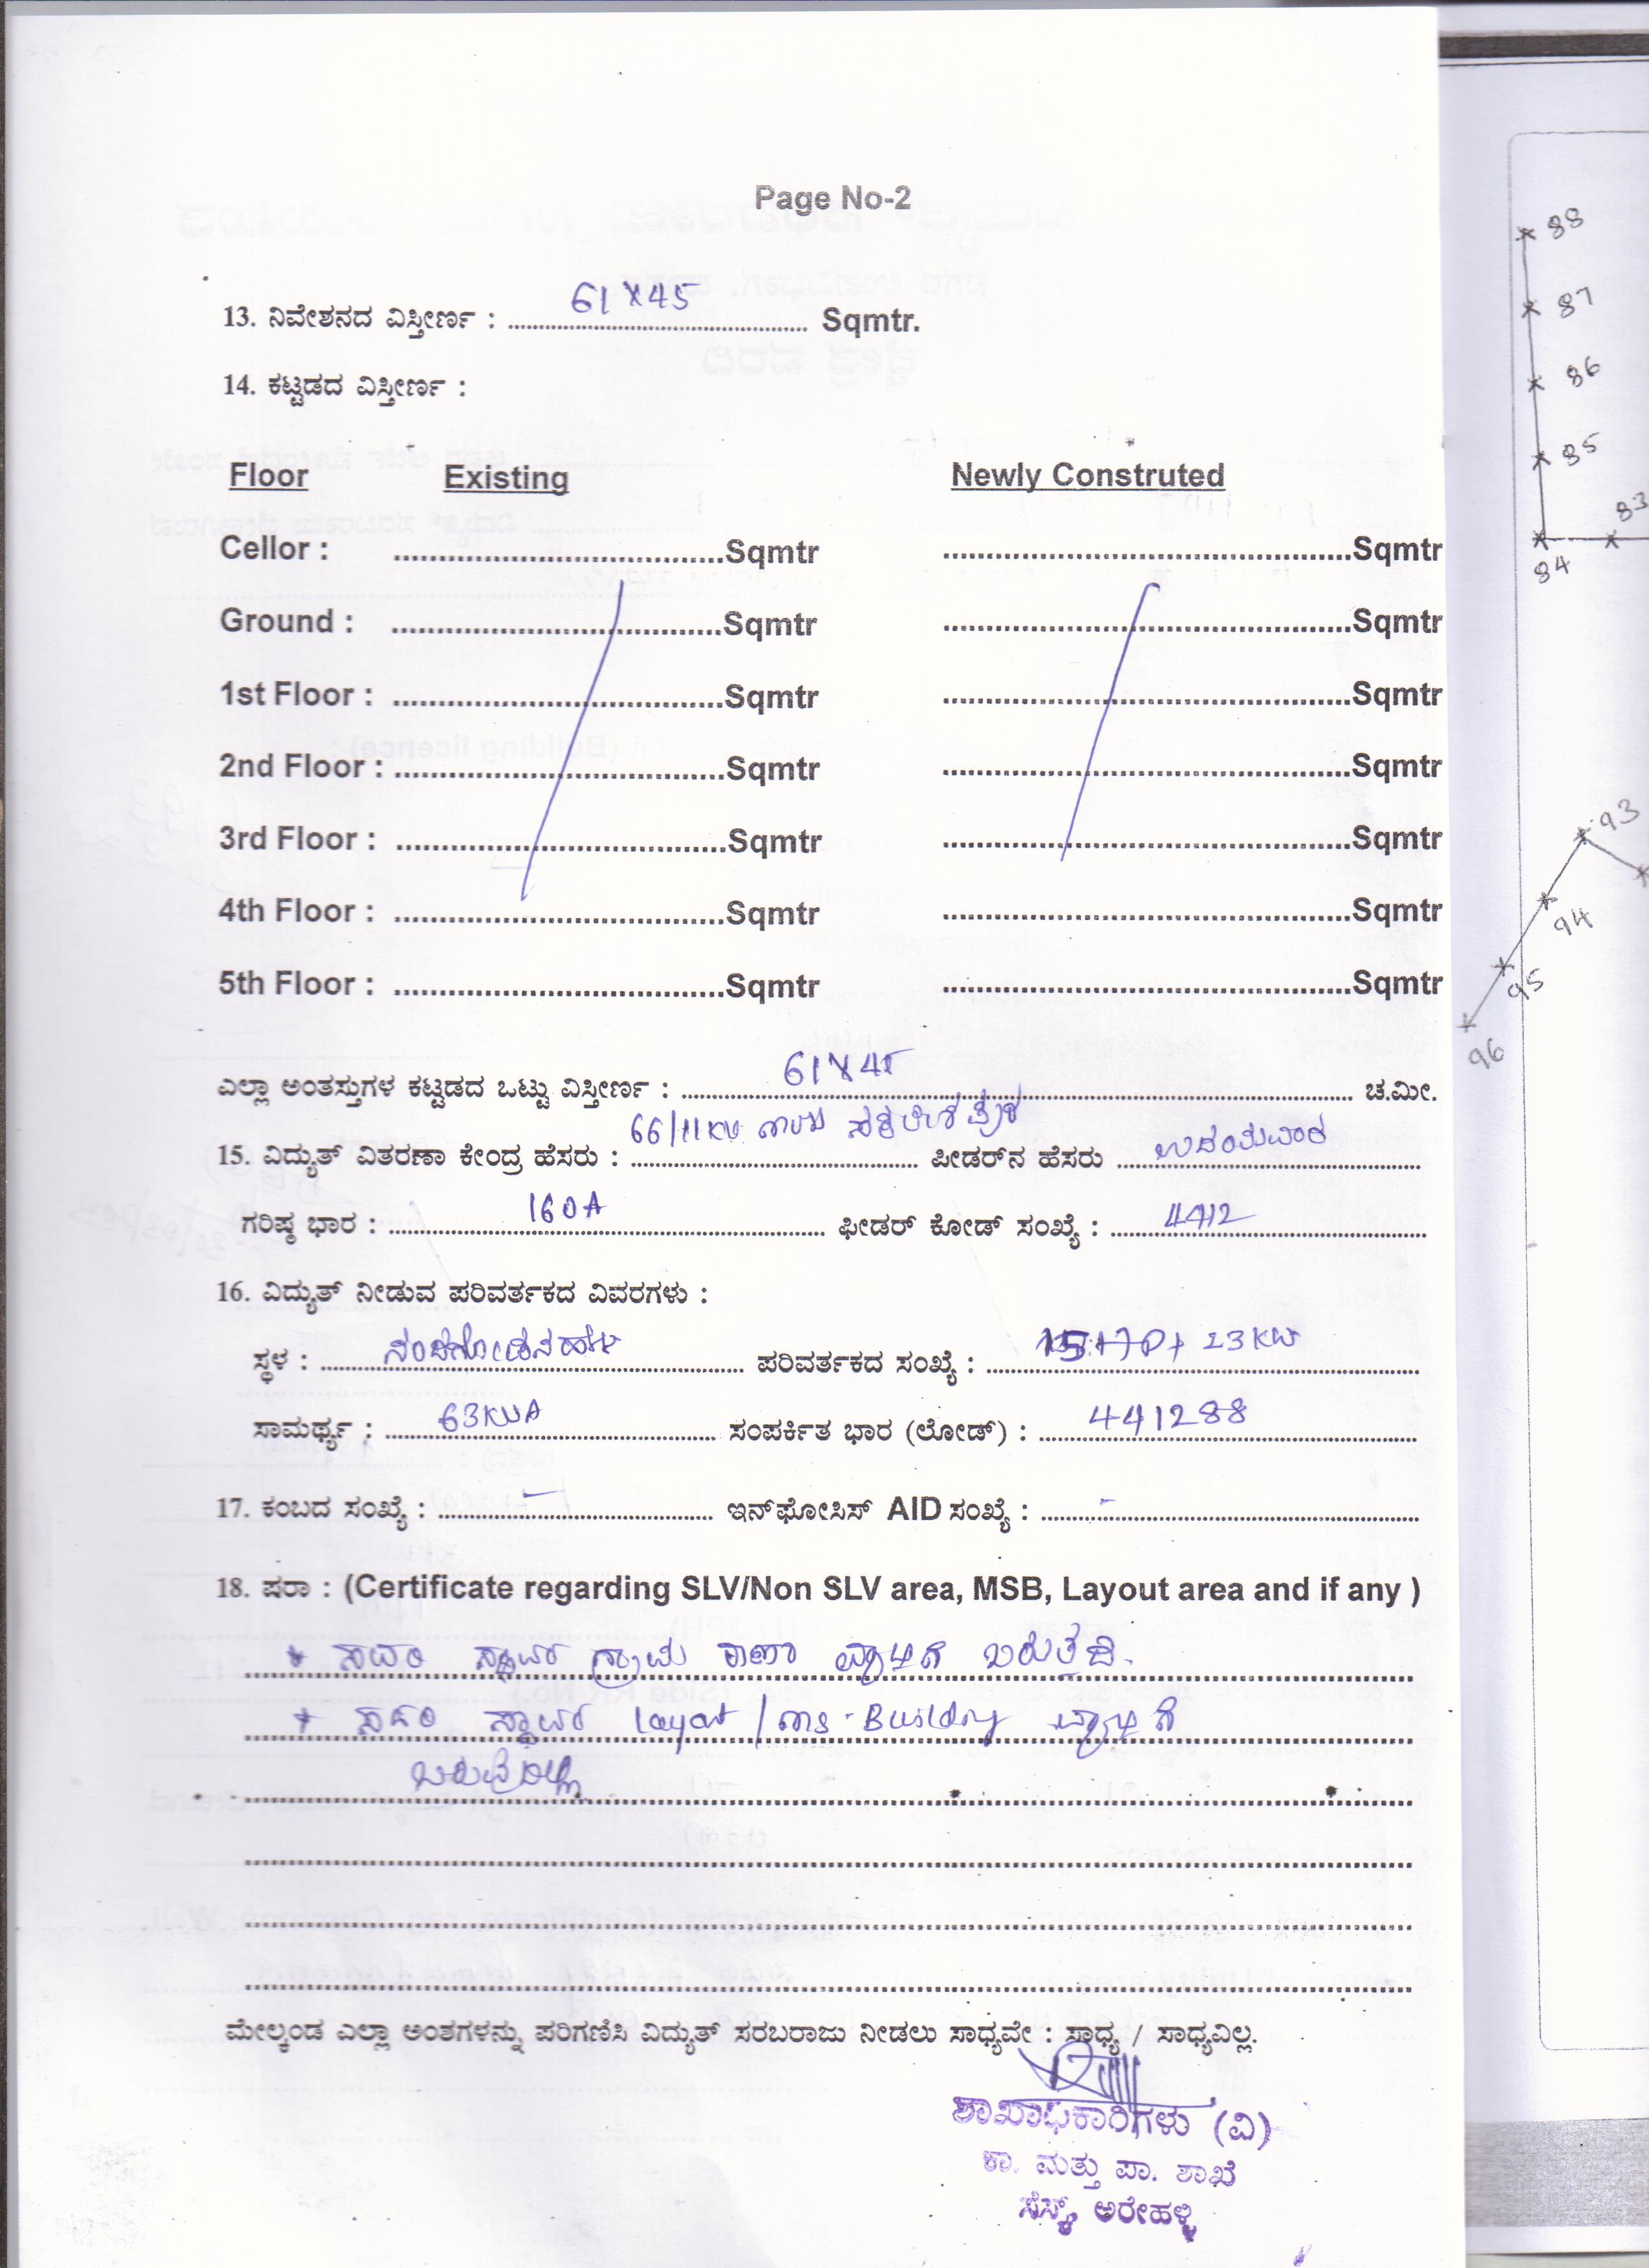 Page No-2
13. ನಿವೇಶನದ ವಿಸ್ತೀರ್ಣ : 61X45 Sqmtr.
14. ಕಟ್ಟಡದ ವಿಸ್ತೀರ್ಣ :
Floor Existing Newly Construted
Cellor : Sqmtr Sqmtr
Ground : Sqmtr Sqmtr
1st Floor : Sqmtr Sqmtr
2nd Floor : Sqmtr Sqmtr
3rd Floor : Sqmtr Sqmtr
4th Floor : Sqmtr Sqmtr
5th Floor : Sqmtr Sqmtr
ಎಲ್ಲಾ ಅಂತಸ್ತುಗಳ ಕಟ್ಟಡದ ಒಟ್ಟು ವಿಸ್ತೀರ್ಣ : 61X45 ಚ.ಮೀ.
15. ವಿದ್ಯುತ್ ವಿತರಣಾ ಕೇಂದ್ರ ಹೆಸರು : 66/11KV ಪೀಡರ್‌ನ ಹೆಸರು ಉದಯವಾರ
ಗರಿಷ್ಠ ಭಾರ : 160A ಫೀಡರ್ ಕೋಡ್ ಸಂಖ್ಯೆ : 4412
16. ವಿದ್ಯುತ್ ನೀಡುವ ಪರಿವರ್ತಕದ ವಿವರಗಳು :
ಸ್ಥಳ : ಪರಿವರ್ತಕದ ಸಂಖ್ಯೆ : 15HP+ 23KW
ಸಾಮರ್ಥ್ಯ : 63KVA ಸಂಪರ್ಕಿತ ಭಾರ (ಲೋಡ್) : 441288
17. ಕಂಬದ ಸಂಖ್ಯೆ : - ಇನ್‌ಫೋಸಿಸ್ AID ಸಂಖ್ಯೆ : -
18. ಷರಾ : (Certificate regarding SLV/Non SLV area, MSB, Layout area and if any )
* ಸದರಿ ಸ್ಥಾವರ ಗ್ರಾಮ ಠಾಣಾ ವ್ಯಾಪ್ತಿಗೆ ಬರುತ್ತದೆ.
* ಸದರಿ ಸ್ಥಾವರ layout / ms-Building ವ್ಯಾಪ್ತಿಗೆ
ಬರುವುದಿಲ್ಲ
ಮೇಲ್ಕಂಡ ಎಲ್ಲಾ ಅಂಶಗಳನ್ನು ಪರಿಗಣಿಸಿ ವಿದ್ಯುತ್ ಸರಬರಾಜು ನೀಡಲು ಸಾಧ್ಯವೇ : ಸಾಧ್ಯ / ಸಾಧ್ಯವಿಲ್ಲ.
ಶಾಖಾಧಿಕಾರಿಗಳು (ವಿ)
ಕಾ. ಮತ್ತು ಪಾ. ಶಾಖೆ
ಸೆಸ್ಕ್, ಅರೇಹಳ್ಳಿ
88
87
86
85
83
84
93
94
95
96